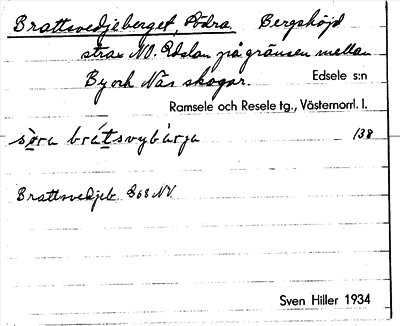 Brattsvedjeberget, Södra Bergshöjd
strax NO. Edslan på gränsen mellan
By och Näs skogar. Edsele s:n
Ramsele och Resele tg., Västernorrl. l.
sø̀ra bráttsvybàrja 138
Brattsvedjeb. 268 NV.
Sven Hiller 1934